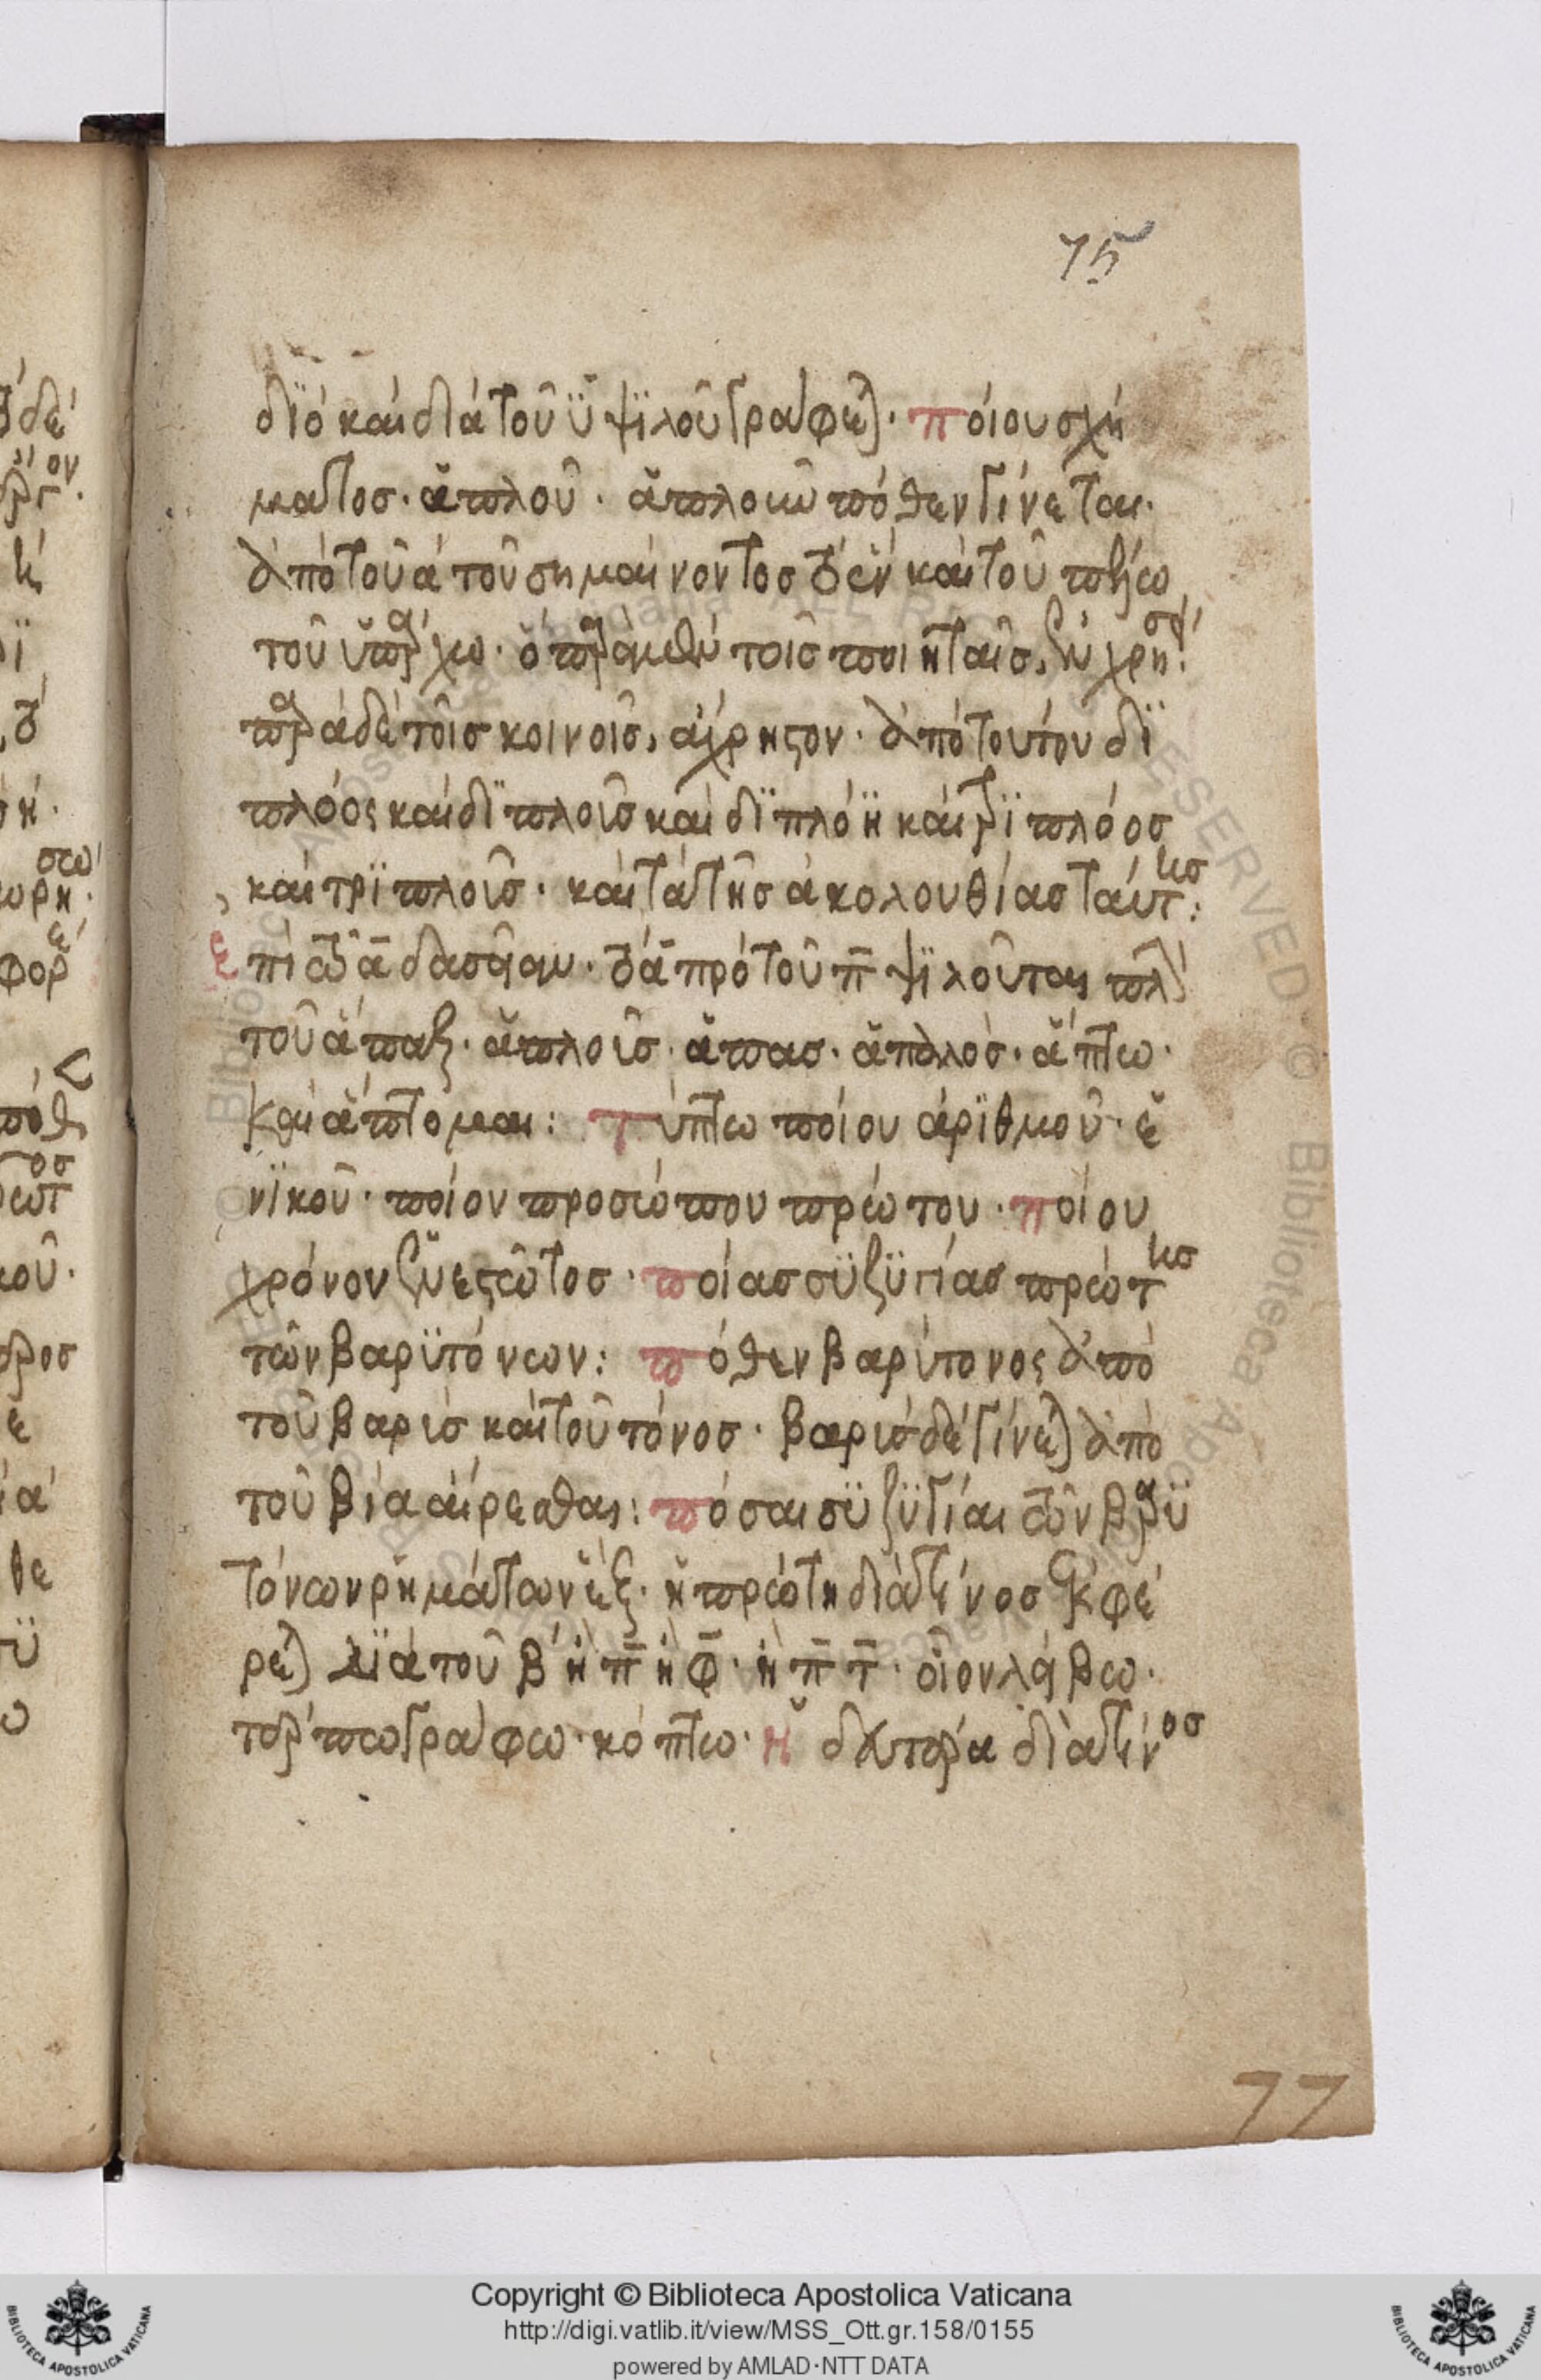 75
διό καὶ διὰ τοῦ ὒ ψϊλοῦ γράφε). ποίου σχή
ματος. ἁπλοῦ. ἁπλοῦν πόθεν γίνεται.
ἀπὸ τοῦ ἁ τοῦ σημαίνοντος τὸ ἓν καὶ τοῦ
τοῦ ὑπάρχω. ὃ παρὰ μὲν τοῖς ποιηταῖς, εὔχρησ
παρὰ δὲ τοῖς κοινοῖς, ἄχρηστον. ἀπὸ τούτου δϊ
πλόος καὶ δϊπλοῦς καὶ δϊπλόη καὶ τρϊπλόος
καὶ τρϊπλοῦς. καὶ τὰ τῆς ἀκολουθίας ταύτης:
ἐπὶ τῶν ᾱ δασῆαν. τὸ ᾱ πρὸ τοῦ π̄ ψϊλοῦται πλὴ
τοῦ ἅπαξ. ἁπλοῦς. ἅπας. ἁπαλός. ἅπτω.
καὶ ἅπτομαι: τύπτω ποίου ἀρϊθμοῦ. ἑ
νϊκοῦ. ποίου προσώπου πρώτου. ποίου
χρόνου ἐνεστῶτος. ποίας σϋζϋγίας πρώτης
τῶν βαρϋτόνων: πόθεν βαρύτονος ἀπὸ
τοῦ βαρὺς καὶ τοῦ τόνος. βαρὺς δὲ γίνε) ἀπὸ
τοῦ βία αἴρεσθαι: πόσαι σϋζϋγίαι τῶν βαρϋ
τόνων ρημάτων ἕξ. ἡ πρώτη διὰ τίνος ἐκφέ
ρε) δϊὰ τοῦ β ἢ π̄ ἢ φ̄. ἢ π̄ τ̄. οἷον λάβω.
τέρπω γράφω. κόπτω. ἡ δευτέρα διὰ τίνος
77
Copyright © Biblioteca Apostolica Vaticana
http://digi.vatlib.it/view/MSS_Ott.gr.158/0155
powered by AMLAD·NTT DATA